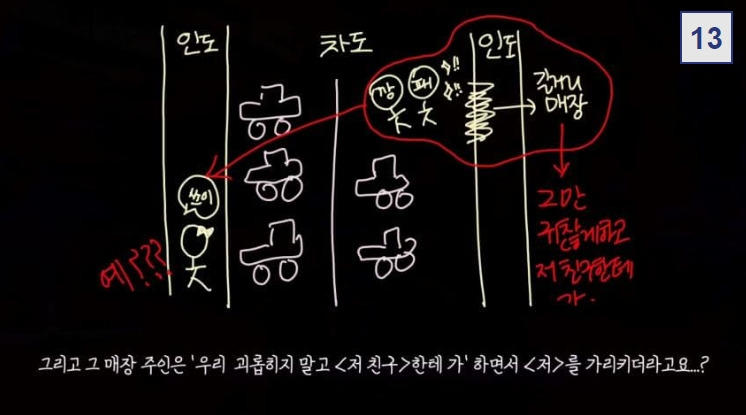 13
인도
차도
인도
깡
패
!!
!!
길거리
매장
쓰니
예???
그만
귀찮게하고
저 친구한테
가.
그리고 그 매장 주인은 '우리 괴롭히지 말고 <저 친구>한테 가' 하면서 <저>를 가리키더라고요...?